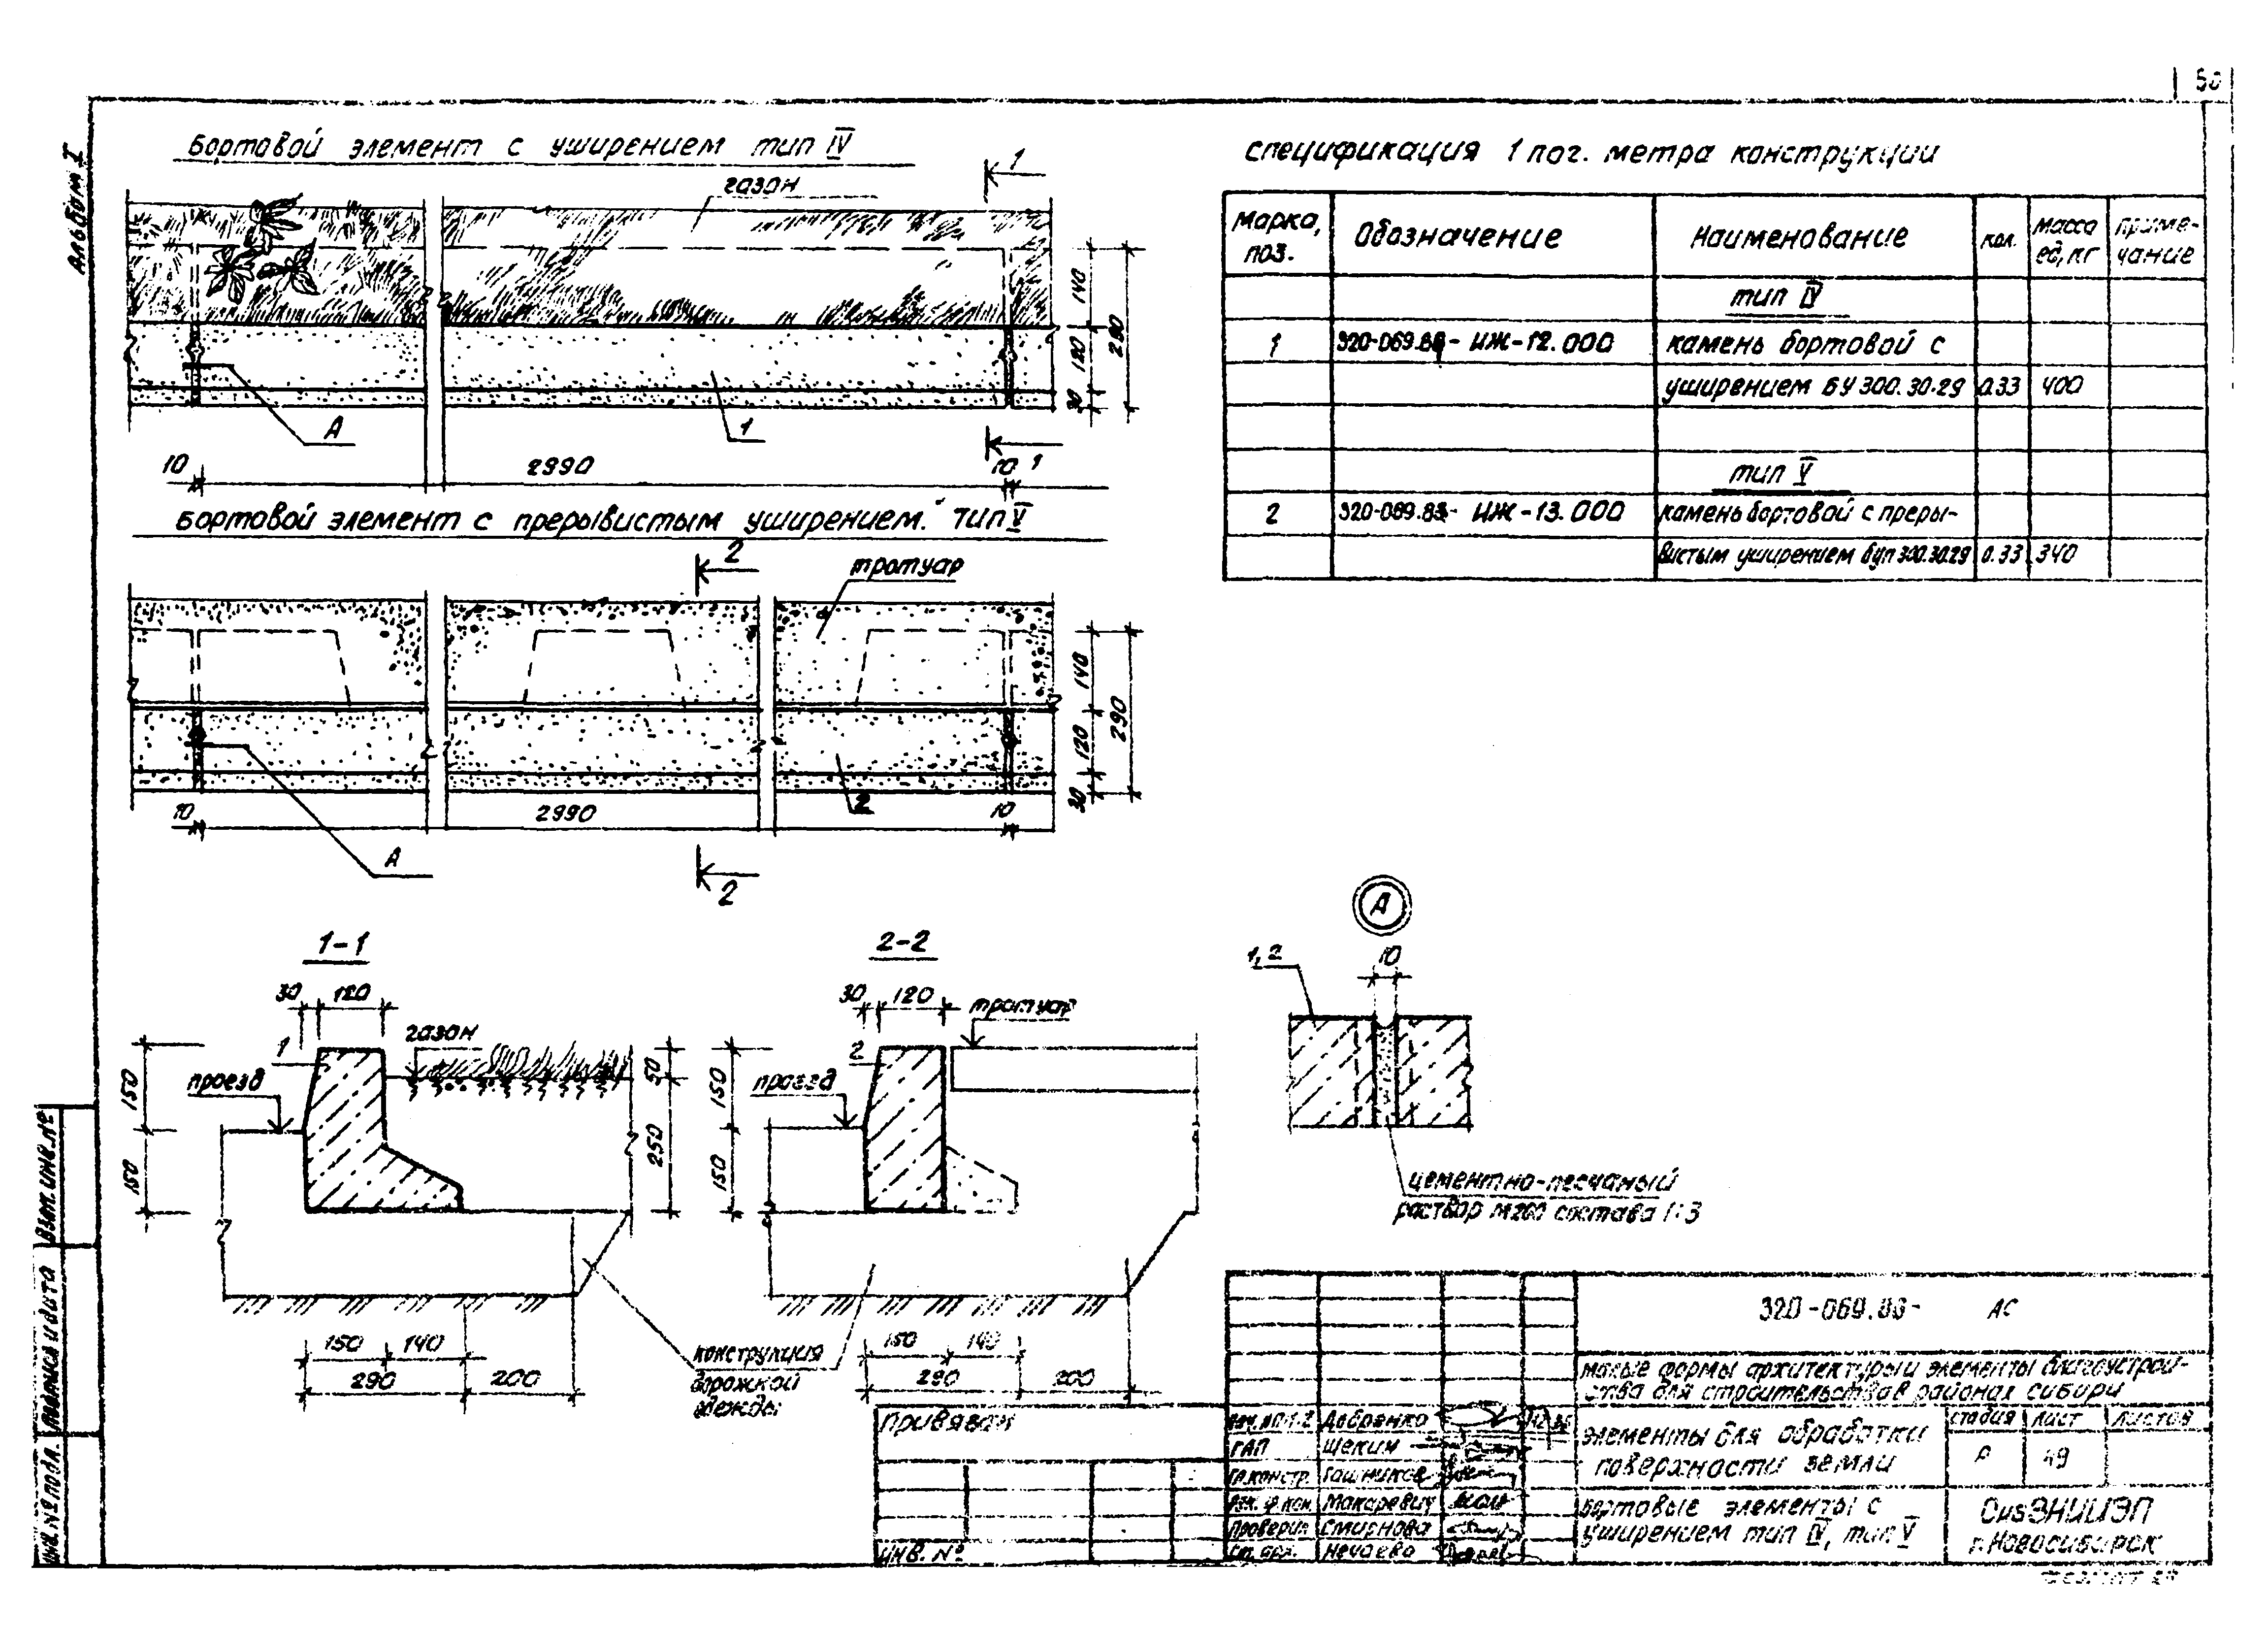 50
Альбом I
бортовой элемент с уширением тип IV
газон
1
140
120
30
290
А
1
10
2990
10
1
бортовой элемент с прерывистым уширением. тип V
2
тротуар
140
120
30
290
2
10
2990
10
А
2
1-1
30
120
газон
1
проезд
150
150
50
250
150
140
290
200
2-2
30
120
тротуар
2
проезд
150
150
150
140
290
200
конструкция
дорожной
одежды
А
1,2
10
цементно-песчаный
раствор М200 состава 1:3
спецификация 1 пог. метра конструкции
Марка, поз.
Обозначение
Наименование
кол.
Масса ед, кг
Приме-чание
тип IV
1 320-069.86- ИЖ-12.000 камень бортовой с
уширением БУ 300.30.29 0.33 400
тип V
2 320-069.83- ИЖ-13.000 камень бортовой с преры-
вистым уширением буп 300.30.29 0.33 340
320-069.86- АС
малые формы архитектуры и элементы благоустрой-
ства для строительства в районах сибири
элементы для обработки
поверхности земли
стадия лист листов
Р 49
бортовые элементы с
уширением тип IV, тип V
СибЗНИИЭП
г. Новосибирск
ГАП Щекин
гл.констр. Гашников
Макаревич
проверил Смирнова
ст. арх. Нечаева
Привязан
инв. №
Взам. инв. №
Подпись и дата
Инв. № подл.